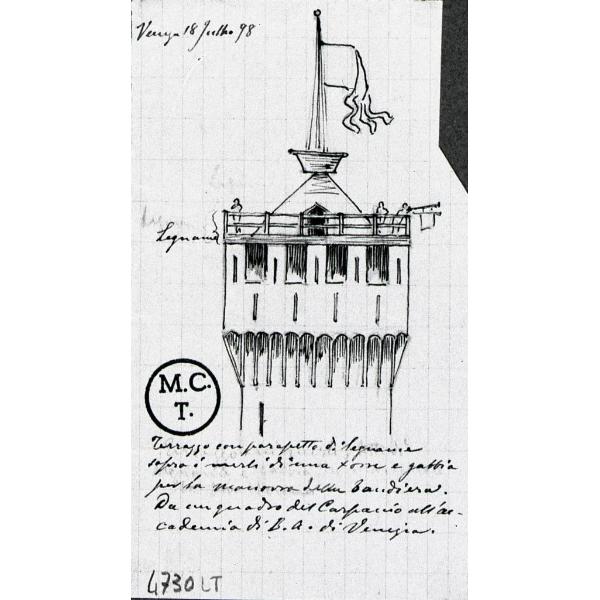 Venez. 18 Julho 98
Legname
M.C.
T.
Terrazzo con parapetto di legname
sopra i merli di una torre e gabbia
per la manovra della bandiera.
Da un quadro del Carpaccio all'ac-
cademia di B. A. di Venezia.
4730 LT